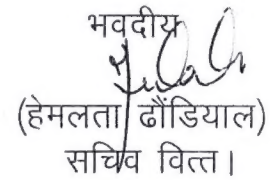 भवदीय
(हेमलता ढौंडियाल)
सचिव वित्त।